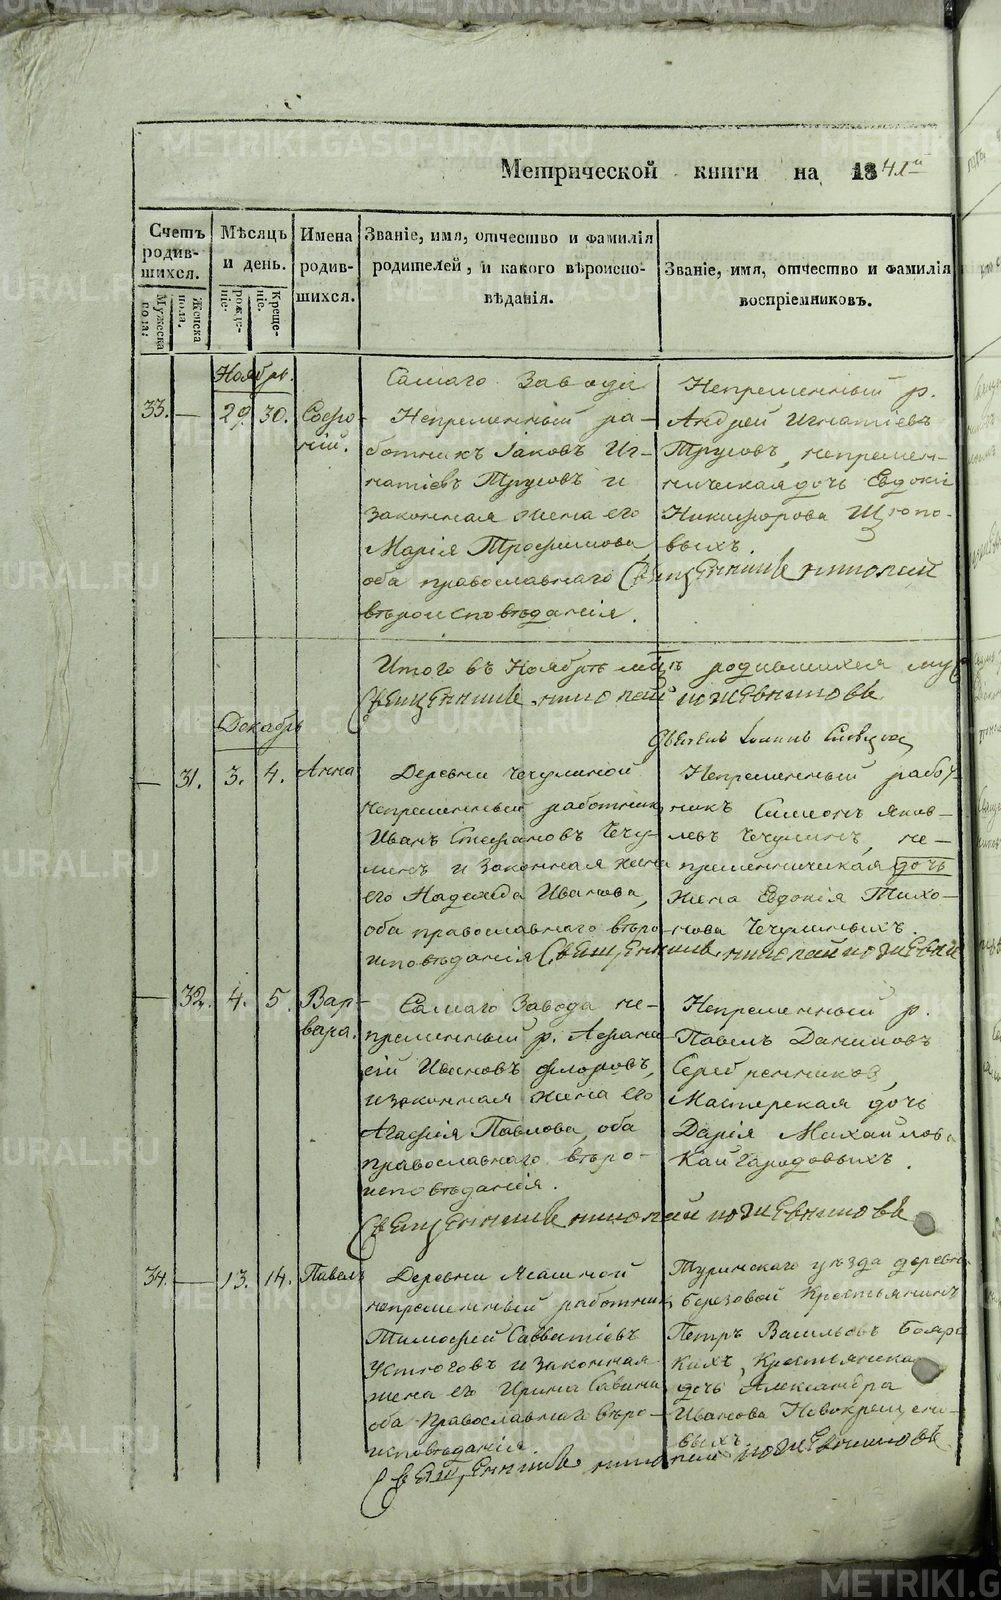 Метрической книги на 1841й
Счетъ родив-шихся.
Мужеска пола.
Женска пола.
Мѣсяцъ и день.
рожде-ніе.
Креще-ніе.
Имена родив-шихся.
Званіе, имя, отчество и фамилія
родителей, и какого вѣроиспо-
вѣданія.
Званіе, имя, отчество и фамилія
воспріемниковъ.
Ноябрь.
33. — 29. 30. Софро-
ній.
Самаго Завода
Непременный ра-
ботникъ Іаковъ Иг-
натіевъ Трусовъ и
законная жена его
Марія Трофимова,
оба православнаго
вѣроисповѣданія.
Непременный р.
Андрей Игнатіевъ
Трусовъ, непремен-
ническая дочь Евдокі
Никифорова Щюпо-
выхъ.
Священникъ Николай
Итого въ Ноябрѣ мцѣ родившихся муж
Священникъ Николай Кожевниковъ
Декабрь
Іоаннъ
— 31. 3. 4. Анна
Деревни Чечулиной
непременный работникъ
Иванъ Стефановъ Чечу-
линъ и законная жена
его Надежда Иванова,
оба православнаго вѣро-
исповѣданія
Непременный рабо-
никъ Симеонъ Яков-
левъ Чечулинъ, не-
пременническая дочь
жена Евдокія Тихо-
нова Чечулиныхъ.
Священникъ Николай Кожевни
— 32. 4. 5. Вар-
вара.
Самаго Завода не-
пременный р. Афана-
сій Ивановъ Флоровъ,
и законная жена его
Агафія Павлова, оба
православнаго вѣро-
исповѣданія.
Непременный р.
Павелъ Даниловъ
Серебренниковъ,
Мастерская дочь
Дарія Михайлова
Кайгародовыхъ.
Священникъ Николай Кожевниковъ
34. — 13. 14. Павелъ
Деревни Ясашной
непременный работник
Тимофей Савватіевъ
Устюговъ и законная
жена его Ирина Савина
оба православнаго вѣро-
исповѣданія.
Туринскаго уѣзда деревни
Березовой Крестьянинъ
Петръ Васильевъ Бояр
кихъ, Крестьянска
дочь Александра
Иванова Новокрещены-
выхъ.
Священникъ Николай Кожевниковъ
METRIKI.GASO-URAL.RU